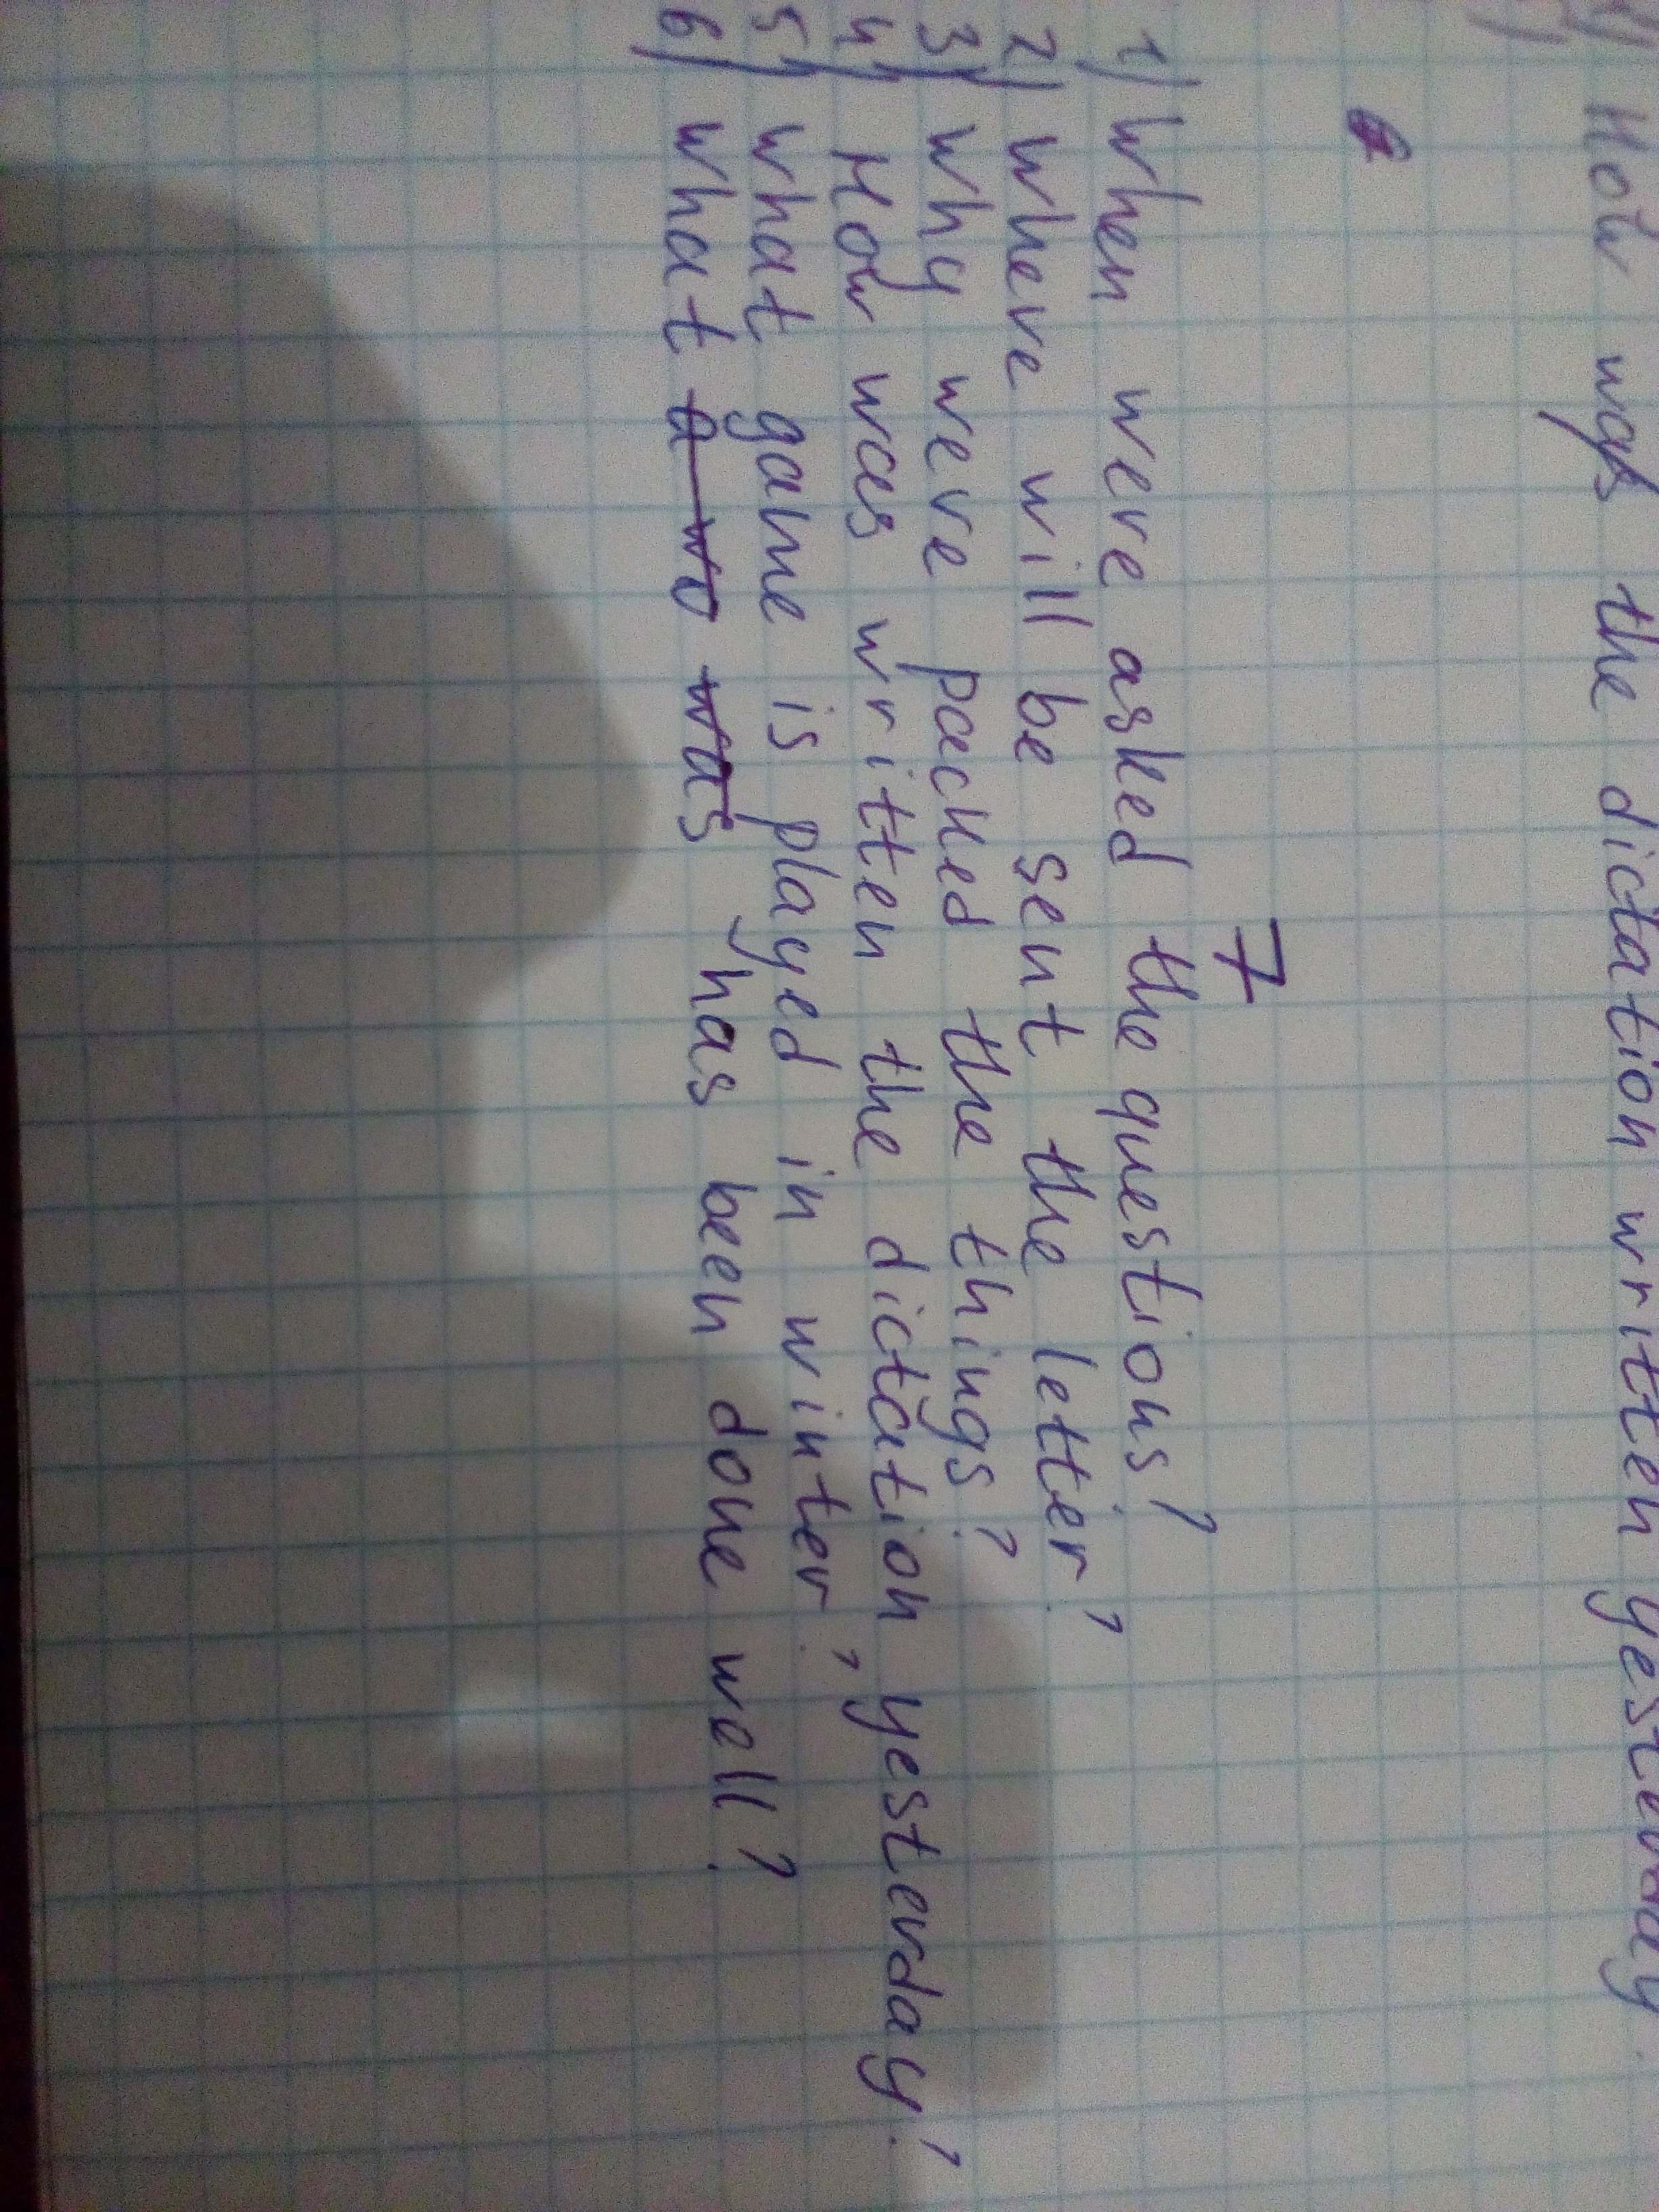 How was the dictation written yesterday
7
1) When were asked the questions?
2) Where will be sent the letter?
3) Why were packed the things?
4) How was written the dictation yesterday?
5) What game is played in winter?
6) What a wo was has been done well?